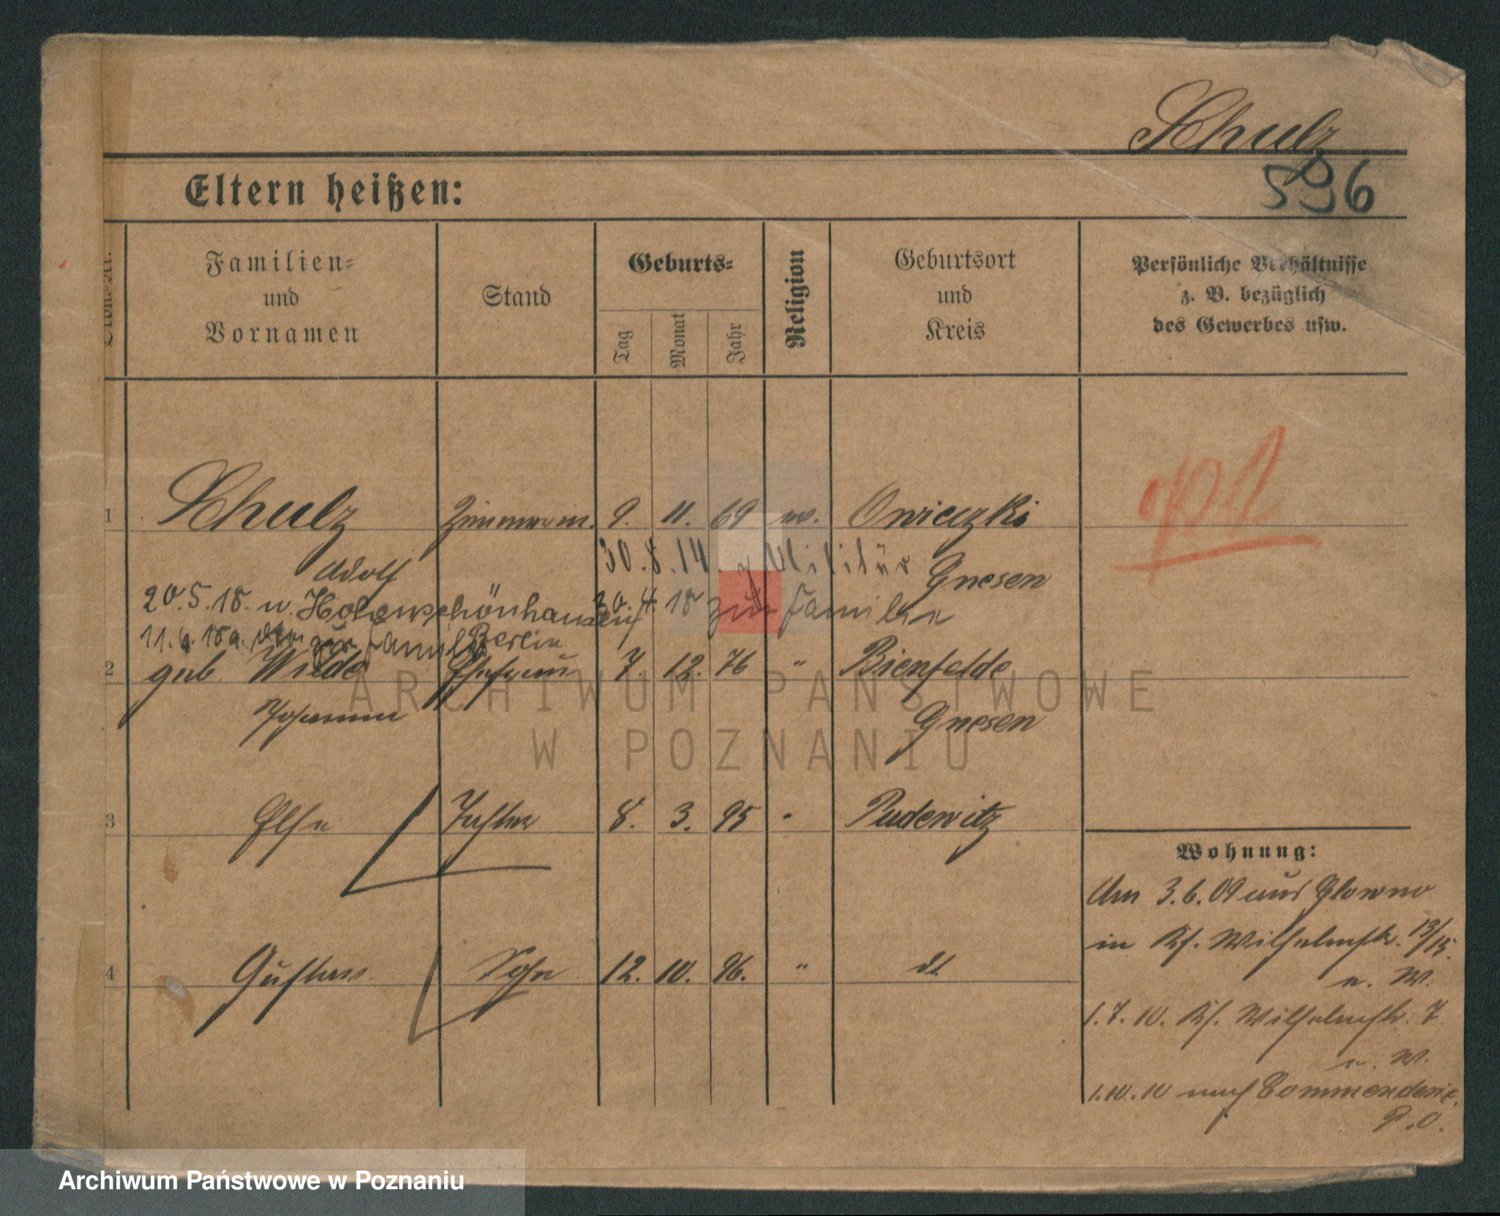 Schulz
596
Eltern heißen:
Familien=
und
Vornamen
Stand
Geburts=
Tag
Monat
Jahr
Religion
Geburtsort
und
Kreis
Persönliche Verhältnisse
z. B. bezüglich
des Gewerbes usw.
1 Schulz Zimmerm. 9. 11. 69 ev. Owieczki
Adolf 30.8.14 z. Militär Gnesen
20.5.18. n. Hohenschönhausen 30.4.18 zur Familie
11.6.18 zur Familie Berlin
2 geb Wilde Ehefrau 7. 12. 76 " Bienfelde
Johanna Gnesen
3 Else Tochter 8. 3. 95 " Pudewitz
4 Gustav Sohn 12. 10. 96. " dt.
Wohnung:
Am 3.6.09 aus Glowno
in Kf. Wilhelmstr. 13/15.
n. W.
1.7.10. Kf. Wilhelmstr. 7
n. W.
1.10.10 nach Commenderie
P.O.
ARCHIWUM PAŃSTWOWE
W POZNANIU
Archiwum Państwowe w Poznaniu